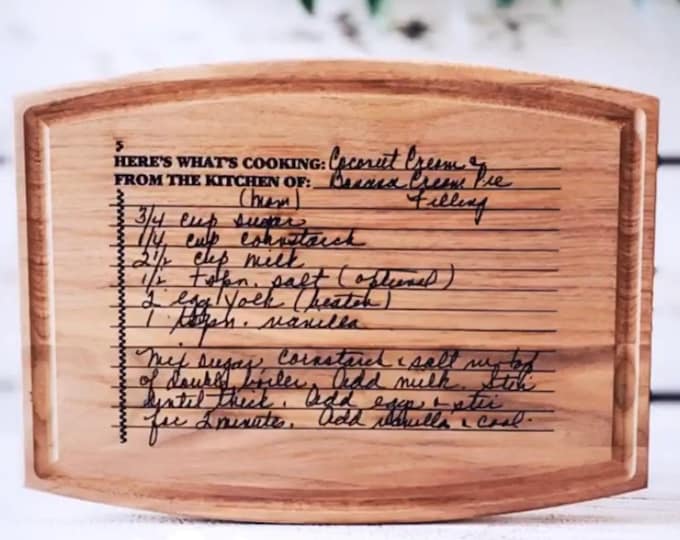 HERE'S WHAT'S COOKING: Coconut Cream &
FROM THE KITCHEN OF: Banana Cream Pie
(Mom) Filling
3/4 cup sugar
1/4 cup cornstarch
2 1/2 cup milk
1/2 tspn. salt (optional)
2 egg yolk (beaten)
1 tspn. vanilla
Mix sugar, cornstarch & salt in top
of double boiler. Add milk. Stir
until thick. Add eggs & stir
for 2 minutes. Add vanilla & cool.